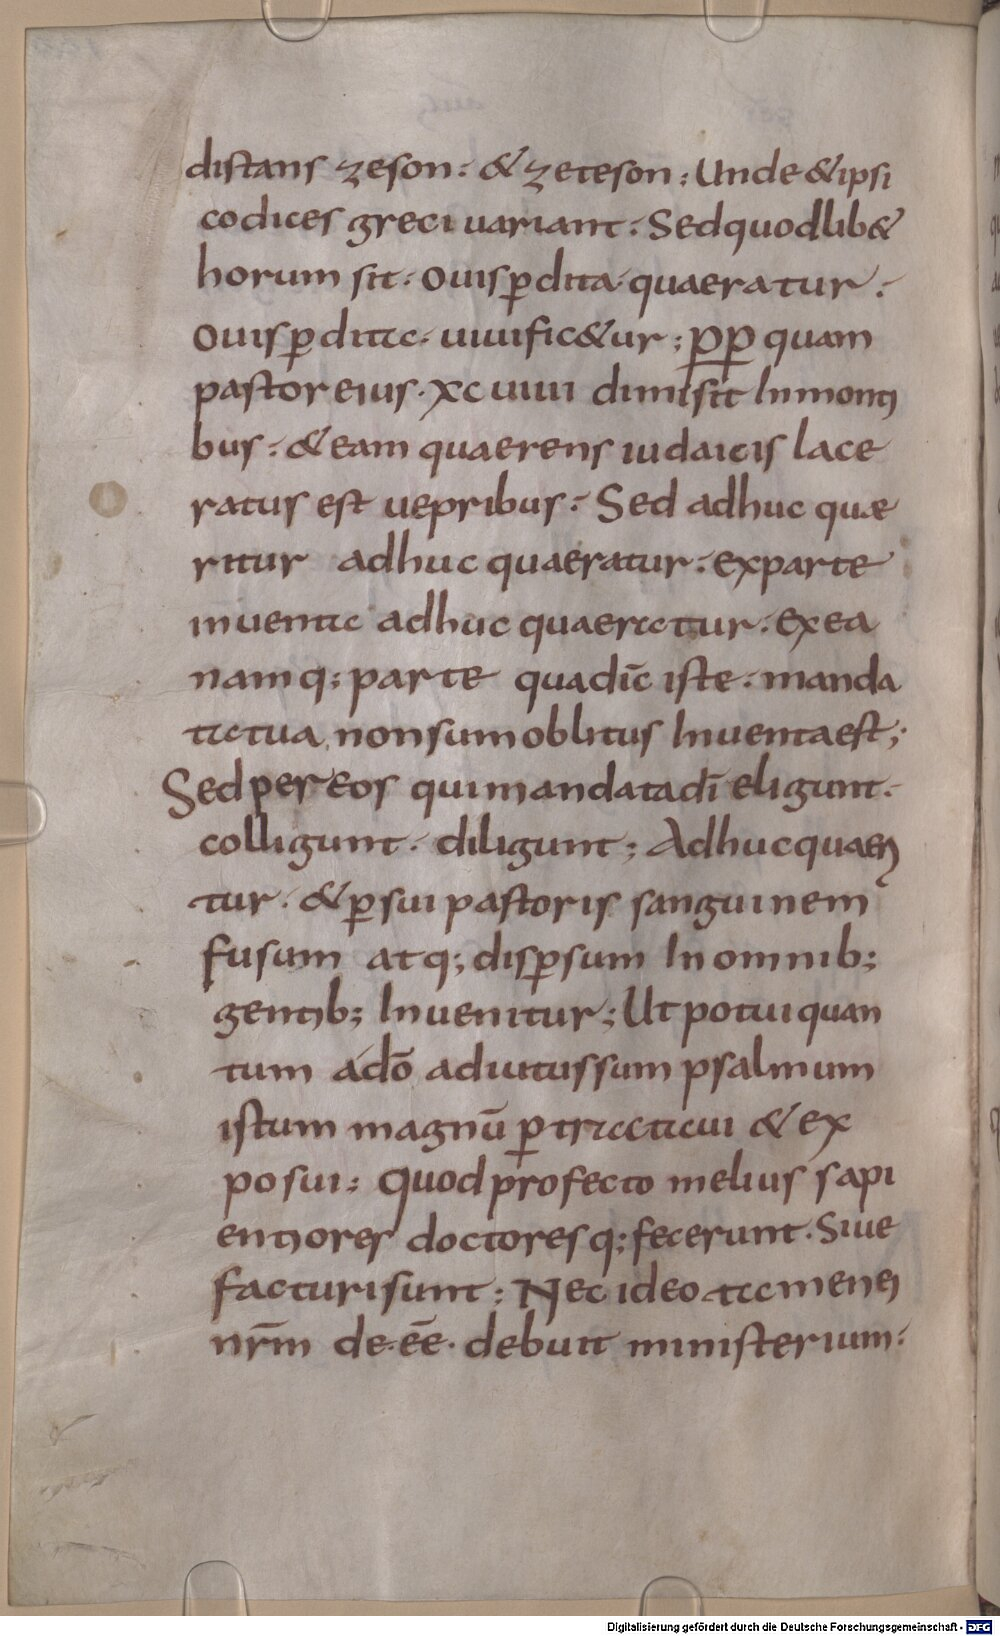 distans zeson· & zeteson; Unde & ipsi
codices greci uariant· Sed quodlib&
horum sit· ouis pdita quaeratur·
ouis pdita· uiuific&ur; pp quam
pastor eius· xcuiiii dimisit In monti
bus· & eam quaerens iudaicis lace
ratus est uepribus· Sed adhuc quae
ritur adhuc quaeratur· ex parte
inuenta adhuc quaeratur· Ex ea
namq; parte qua dic̄ iste· manda
ta tua non sum oblitus Inuenta est;
Sed per eos qui mandata dī eligunt·
colligunt· diligunt; Adhuc quaeri
tur· & p sui pastoris sanguinem
fusum atq; dispsum In omnib;
gentib; Inuenitur; Ut potui quan
tum a dō adiutus sum psalmum
istum magnū ptractaui & ex
posui; quod profecto melius sapi
entiores doctoresq; fecerunt· Siue
facturi sunt; Nec ideo tamen ei
nr̄m de·eē· debuit ministerium·
Digitalisierung gefördert durch die Deutsche Forschungsgemeinschaft - DFG